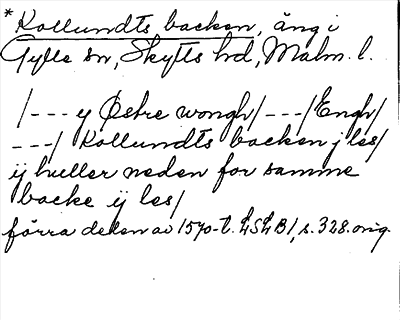 *Kollundts backen, äng i
Gylle sn, Skytts hd, Malm. l.
/--- y Østre wongh/---/Engh/
---/ Kollundts backen j les/
ij huller neden for samme
backe ij les/
förra delen av 1570-t. LSLB1, s. 328. orig.